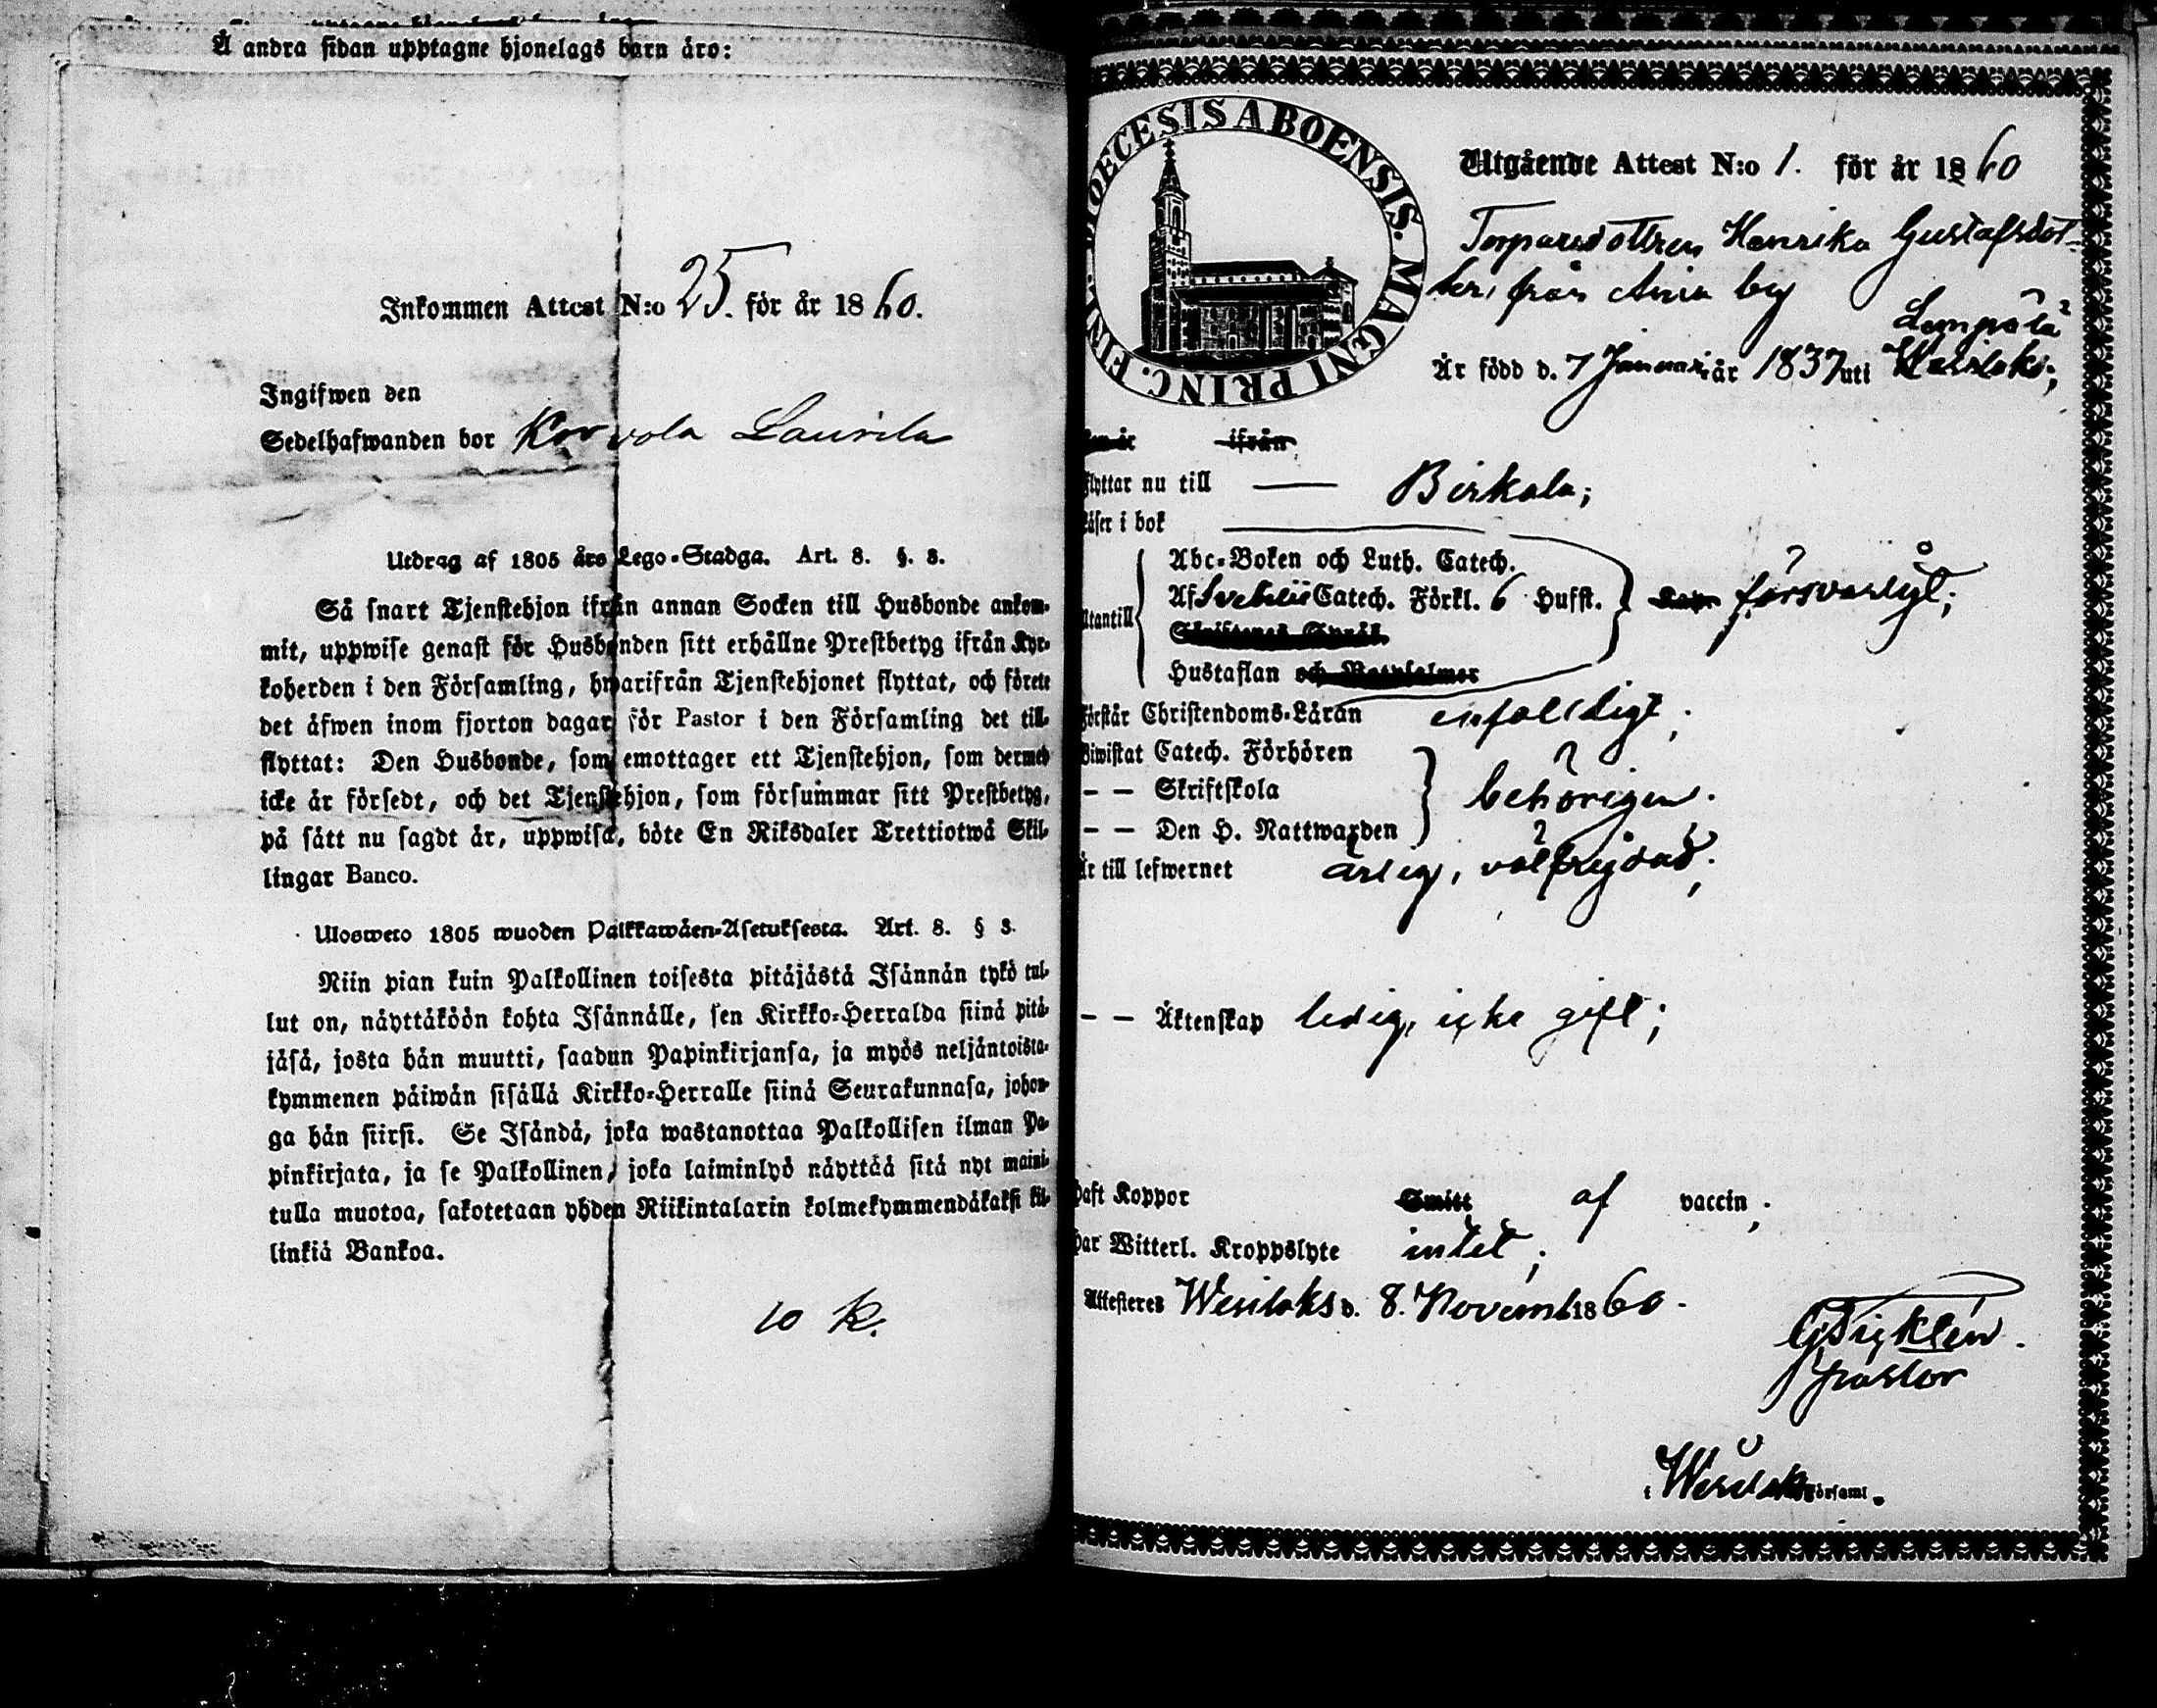 Å andra sidan upptagne hjonelags barn äro:
Inkommen Attest N:o 25. för år 1860.
Ingifwen den
Sedelhafwanden bor Korvola Laurila
Utdrag af 1805 års Lego-Stadga. Art. 8. §. 8.
Så snart Tjenstehjon ifrån annan Socken till Husbonde ankom-
mit, uppwise genast för Husbonden sitt erhållne Prestbetyg ifrån Kyr-
koherden i den Församling, hwarifrån Tjenstehjonet flyttat, och förete
det äfwen inom fjorton dagar för Pastor i den Församling det till-
flyttat: Den Husbonde, som emottager ett Tjenstehjon, som dermed
icke är försedt, och det Tjenstehjon, som försummar sitt Prestbetyg,
på sätt nu sagdt är, uppwisa, böte En Riksdaler Trettiotwå Skil-
lingar Banco.
Ulosweto 1805 wuoden Palkkawäen-Asetuksesta. Art. 8. § 8.
Niin pian kuin Palkollinen toisesta pitäjästä Isännän tykö tul-
lut on, näyttäköön kohta Isännälle, sen Kirkko-Herralda siinä pitä-
jäsä, josta hän muutti, saadun Papinkirjansa, ja myös neljäntoista-
kymmenen päiwän sisällä Kirkko-Herralle siinä Seurakunnasa, johon-
ga hän siirsi. Se Isändä, joka wastanottaa Palkollisen ilman Pa-
pinkirjata, ja se Palkollinen, joka laiminlyö näyttää sitä nyt maini-
tulla muotoa, sakotetaan yhden Riikintalarin kolmekymmendäkaksi kil-
linkiä Bankoa.
10 K.
DIOECESIS ABOENSIS. MAGNI PRINC. FINL.
Utgående Attest N:o 1. för år 1860
Torparedottren Henrika Gustafsdot-
ter, från Annia by
Lempälä
Är född d. 7 Januari år 1837 uti Wesilaks;
ifrån
Flyttar nu till — Birkala;
Läser i bok
Abc-Boken och Luth. Catech.
Utantill Af Svebelii Catech. Förkl. 6 Hufst. försvarligt;
Skriftenes Språk
Hustaflan och Botpsalmer
Förstår Christendoms-Läran enfalldigt;
Biwistat Catech. Förhören
— — Skriftskola behörigen.
— — Den H. Nattwarden
Är till lefwernet ärlig, välfrejdad;
— — Äktenskap ledig, icke gift;
Haft Koppor Smitt af vaccin;
Har Witterl. Kroppslyte intet;
Attesteres Wesilaks d. 8. Novemb. 1860.
Pastor
i Wesilaks Församl.